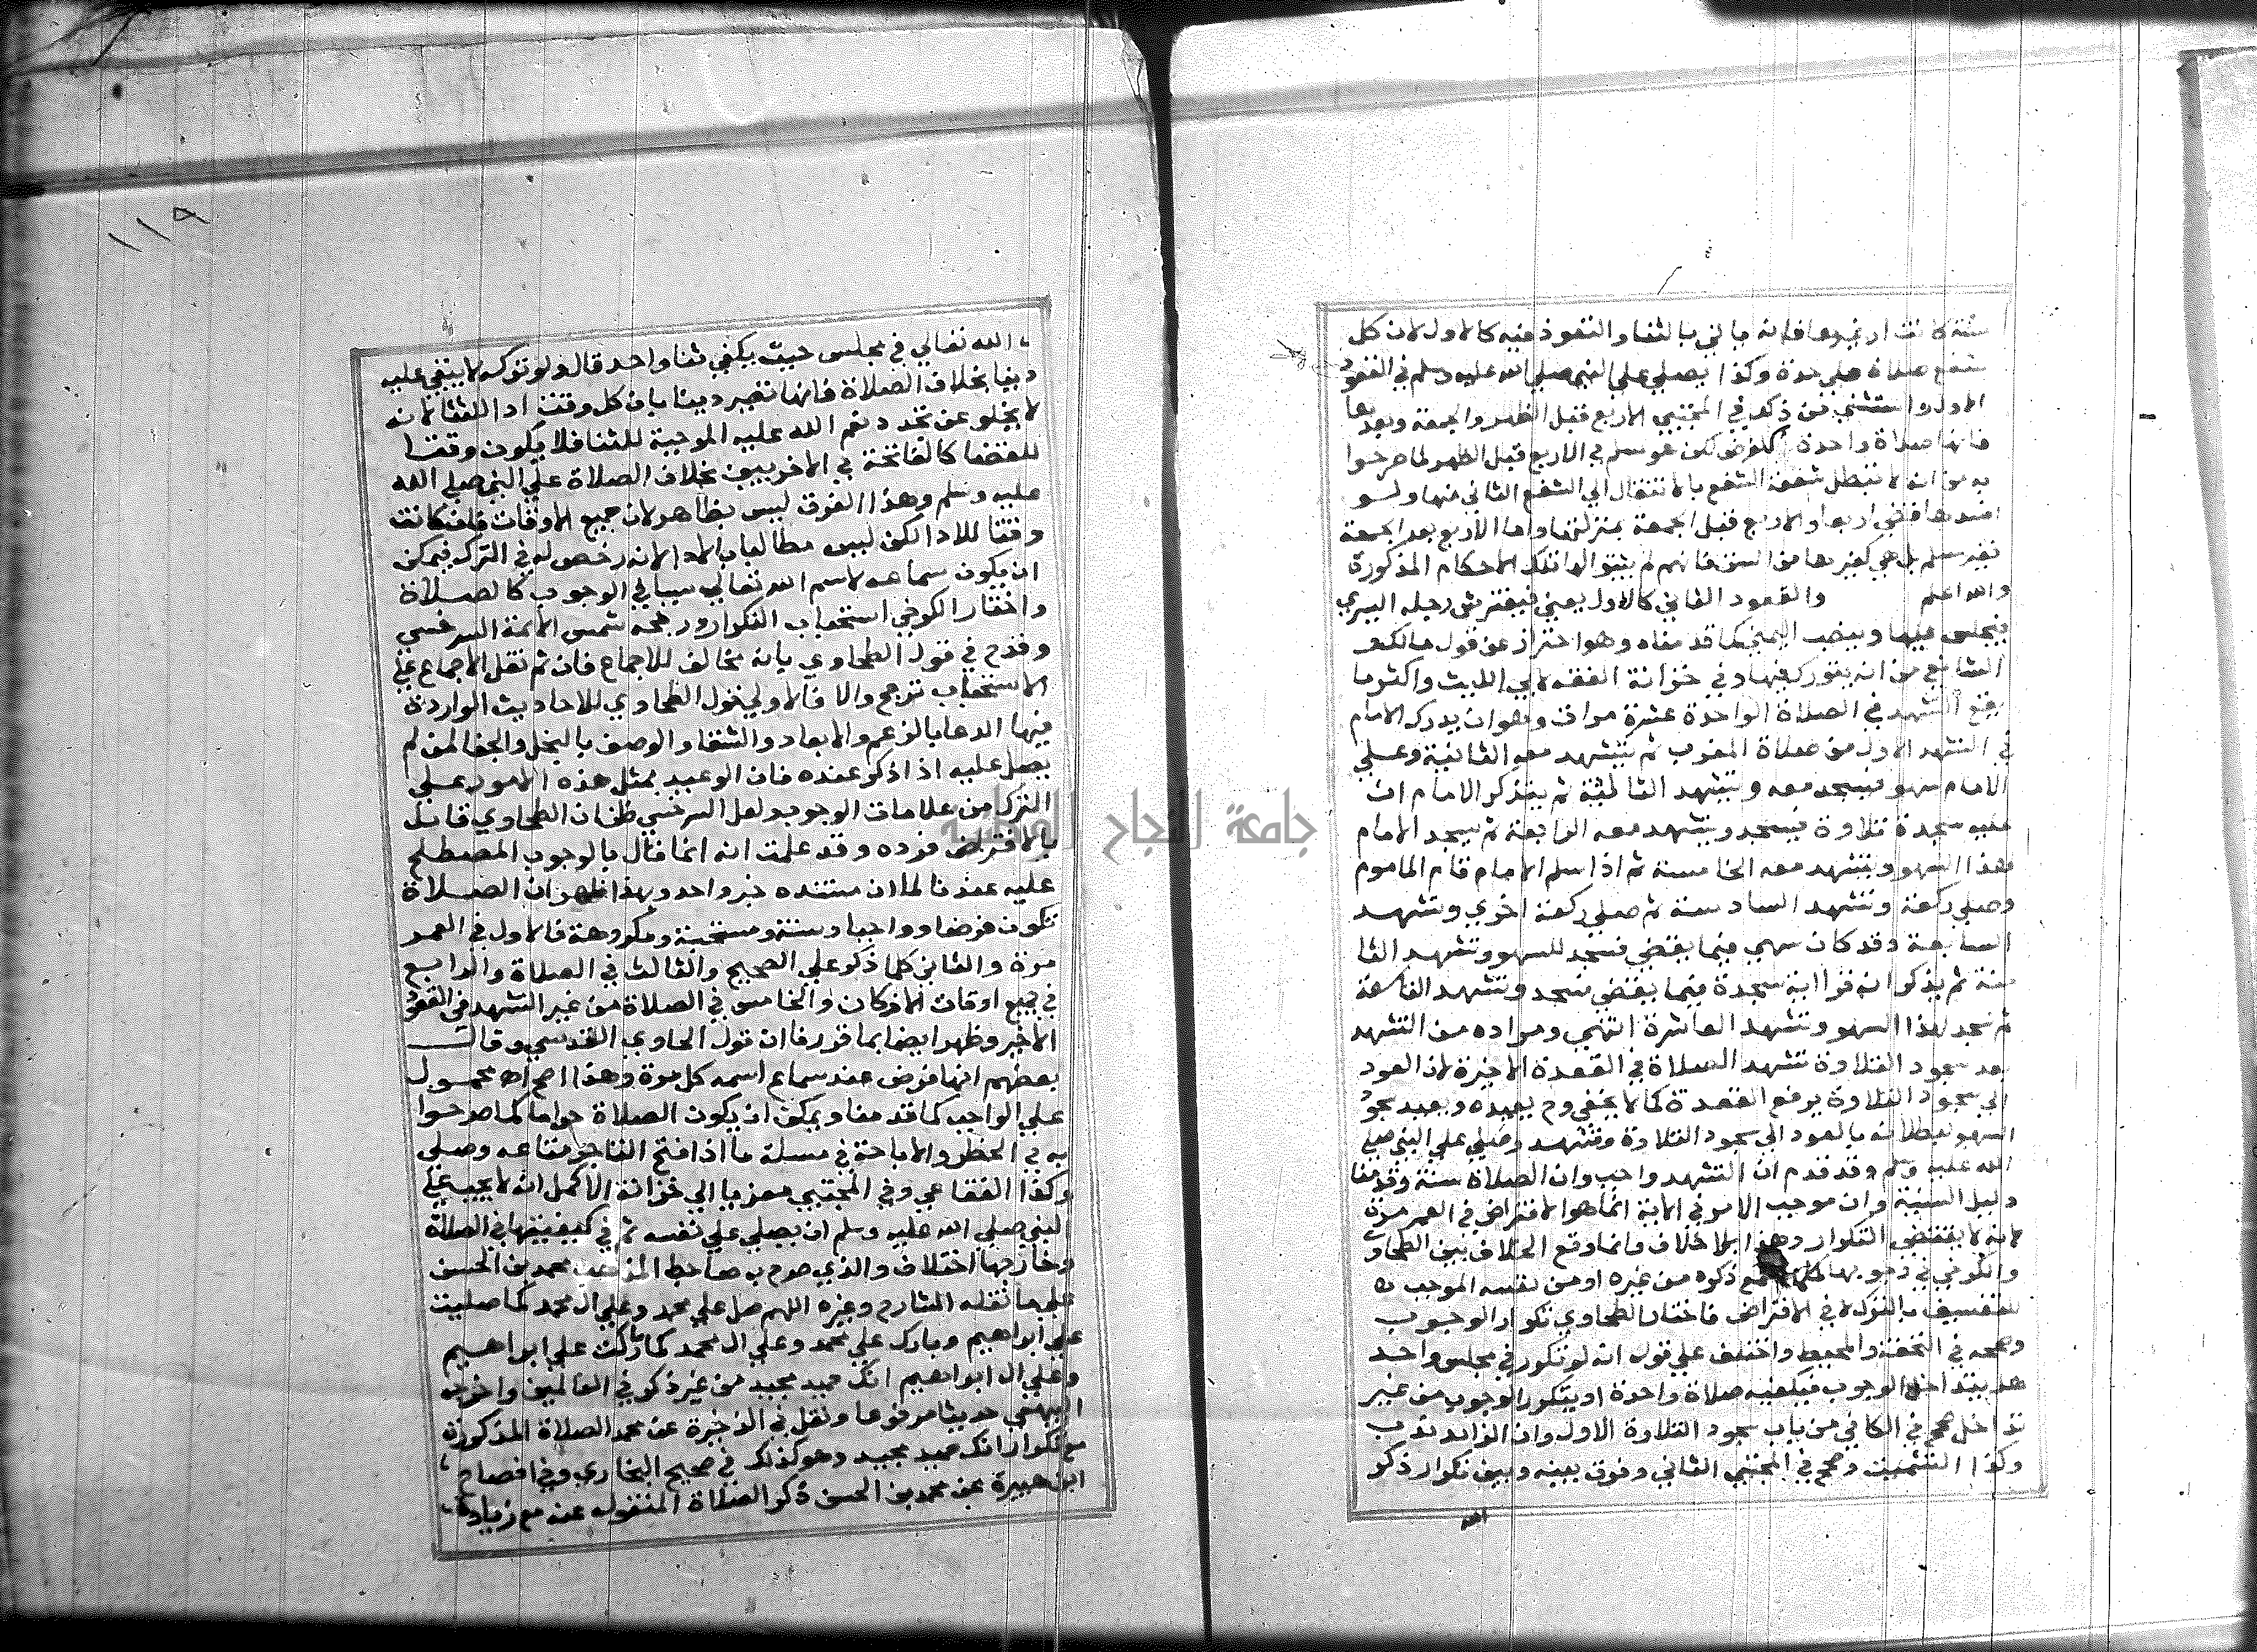 سنة كانت او غيرها فانه ياتي بالثنا والتعوذ فيه كالاول لان كل
شفع صلاة علي حدة وكذا يصلي علي النبي صلي الله عليه وسلم في القعود
الاول واستثني من ذلك في المجتبي الاربع قبل الظهر والجمعة وبعدها
فانها صلاة واحدة كالفرض لكن هو مسلم في الاربع قبل الظهر لما صرحوا
به من انه لا تبطل شفعة الشفيع بالانتقال الي الشفع الثاني منها ولو
افسدها قضي اربعا والاربع قبل الجمعة بمنزلتها واما الاربع بعد الجمعة
فغير مسلم بل هي كغيرها من السنن فانهم لم يثبتوا لها تلك الاحكام المذكورة
والله اعلم والقعود الثاني كالاول يعني فيفترش رجله اليسري
فيجلس عليها وينصب اليمني كما قدمناه وهو احتراز عن قول مالك
الشافعي من انه يتورك فيها وفي خزانة الفقه لابي الليث واكثر ما
يقع التشهد في الصلاة الواحدة عشرة مرات وهو ان يدرك الامام
في التشهد الاول من صلاة المغرب ثم يتشهد معه الثانية وعلي
الامام سهو فيسجد معه ويتشهد الثالثة ثم يتذكر الامام ان
عليه سجدة تلاوة فيسجد ويتشهد معه الرابعة ثم يسجد الامام
لهذا السهو ويتشهد معه الخامسة ثم اذا سلم الامام قام الماموم
وصلي ركعة وتشهد السادسة ثم صلي ركعة اخري وتشهد
السابعة وقد كان سهي فيما يقضي فسجد للسهو وتشهد الثا
منة ثم يذكر انه قرا اية سجدة فيما يقضي فسجد وتشهد التاسعة
ثم سجد لهذا السهو وتشهد العاشرة انتهي ومراده من التشهد
بعد سجود التلاوة تشهد الصلاة في القعدة الاخيرة لان العود
الي سجود التلاوة يرفع القعدة كما لا يخفي وح يعيده ويعيد سجود
السهو لبطلانه بالعود الي سجود التلاوة وتشهد وصلي علي النبي صلي
الله عليه وسلم وقد قدم ان التشهد واجب وان الصلاة سنة وقدمنا
دليل السنية وان موجب الامر في الاية انما هو الافتراض في العمر مرة
لانه لا يقتضي التكرار وهذا بلا خلاف وانما وقع الخلاف بين الطحاوي
والكرخي في وجوبها كلما سمع ذكره من غيره او من نفسه الموجب
للتفسيق بالترك لا في الافتراض فاختار الطحاوي تكرار الوجوب
وصححه في التحفة والمحيط واختلف علي قوله انه لو تكرر في مجلس واحد
هل يتداخل الوجوب فيكفيه صلاة واحدة او يتكرر الوجوب من غير
تداخل صحح في الكافي من باب سجود التلاوة الاول وان الزائد ندب
وكذا التشميت وصحح في المجتبي الثاني وفرق بينه وبين تكرار ذكر
الله
١١٩
الله تعالي في مجلس حيث يكفي ثنا واحد قال ولو تركه لا يبقي عليه
دينا بخلاف الصلاة فانها تصير دينا بان كل وقت اد اللثنا لانه
لا يخلو عن تجدد نعم الله عليه الموجبة للثنا فلا يكون وقتا
للقضا كالفاتحة في الاخريين بخلاف الصلاة علي النبي صلي الله
عليه وسلم وهذا الفرق ليس بظاهر لان جميع الاوقات وان كانت
وقتا للادا لكن ليس مطالبا بالادا لانه رخص له في الترك فيمكن
ان يكون سماعه لاسم الله تعالي سببا في الوجوب كالصلاة
واختار الكرخي استحباب التكرار ورجحه شمس الائمة السرخسي
وقدح في قول الطحاوي بانه مخالف للاجماع فان ثم نقل الاجماع علي
الاستحباب ترجح والا فالاولي قول الطحاوي للاحاديث الواردة
فيها الدعا بالرغم والابعاد والشقا والوصف بالبخل والجفا لمن لم
يصل عليه اذا ذكر عنده فان الوعيد بمثل هذه الامور علي
الترك من علامات الوجوب ولعل السرخسي ظن ان الطحاوي قائل
بالافتراض فرده وقد علمت انه انما قال بالوجوب المصطلح
عليه عندنا لما ان مستنده خبر واحد وبهذا ظهر ان الصلاة
تكون فرضا وواجبا وسنة ومستحبة ومكروهة فالاول في العمر
مرة والثاني كلما ذكر علي الصحيح والثالث في الصلاة والرابع
في جميع اوقات الامكان والخامس في الصلاة من غير التشهد في القعود
الاخير وظهر ايضا بما قررنا ان قول الحاوي القدسي وقال
بعضهم انها فرض عند سماع اسمه كل مرة وهذا اصح اه محمول
علي الواجب كما قدمنا ويمكن ان يكون الصلاة حراما كما صرحوا
به في الحظر والاباحة في مسئلة ما اذا فتح التاجر متاعه وصلي
وكذا الفقاعي وفي المجتبي معزيا الي خزانة الاكمل انه لا يجب علي
النبي صلي الله عليه وسلم ان يصلي علي نفسه ثم في كيفيتها في الصلاة
وخارجها اختلاف والذي صرح به صاحب المذهب محمد بن الحسن
علي ما نقله الشارح وغيره اللهم صل علي محمد وعلي ال محمد كما صليت
علي ابراهيم وبارك علي محمد وعلي ال محمد كما باركت علي ابراهيم
وعلي ال ابراهيم انك حميد مجيد من غير ذكر في العالمين واخرجه
البيهقي حديثا مرفوعا ونقل في الذخيرة عن محمد الصلاة المذكورة
مع تكرار انك حميد مجيد وهو كذلك في صحيح البخاري وفي افصاح
ابن هبيرة عن محمد بن الحسن ذكر الصلاة المنقولة عنه مع زيادة
جامعة النجاح الوطنية